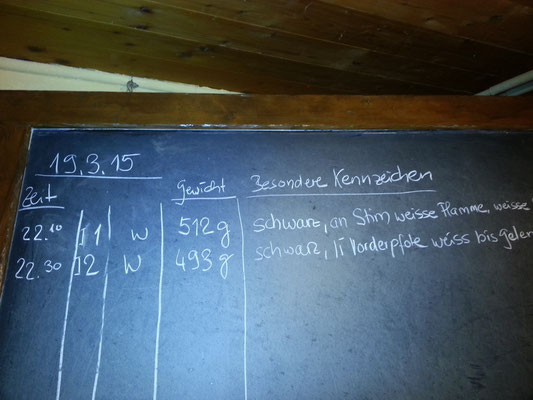 19.3.15
Zeit Gewicht Besondere Kennzeichen
22.10 J1 W 512g schwarz, an Stirn weisse Flamme, weisse
22.30 J2 W 493g schwarz, li Vorderpfote weiss bis gelen